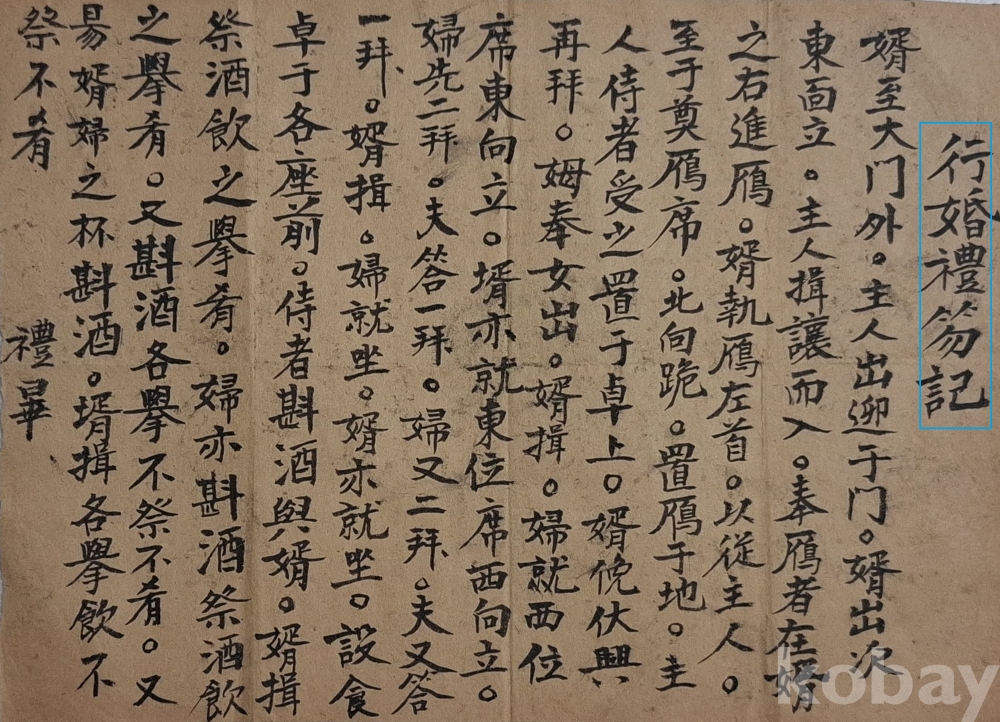 行婚禮笏記
婿至大门外。主人出迎于门。婿出次
東面立。主人揖讓而入。奉鴈者在婿
之右進鴈。婿執鴈左首。以從主人。
至于奠鴈席。北向跪。置鴈于地。主
人侍者受之置于卓上。婿俛伏興
再拜。姆奉女出。婿揖。婦就西位
席東向立。壻亦就東位席西向立。
婦先二拜。夫答一拜。婦又二拜。夫又答
一拜。婿揖。婦就坐。婿亦就坐。設食
卓于各座前。侍者斟酒與婿。婿揖
祭酒飮之擧肴。婦亦斟酒祭酒飮
之擧肴。又斟酒各擧不祭不肴。又
易婿婦之杯斟酒。壻揖各擧飮不
祭不肴
禮畢
kobay